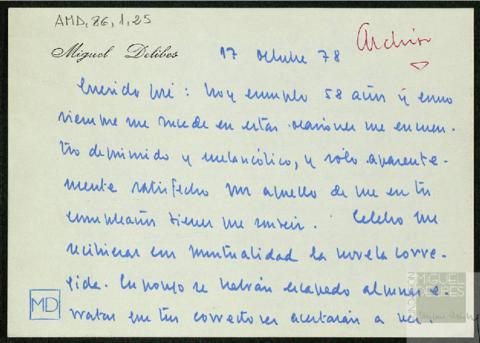 AMD, 86, 1, 25
Miguel Delibes
17 octubre 78
Archivo
Querido José: hoy cumplo 58 años y como
siempre me sucede en estas ocasiones me encuen-
tro deprimido y melancólico, y sólo aparente-
mente satisfecho por aquello de que en tu
cumpleaños tienes que sonreír. Celebro que
recibieras con puntualidad la novela corre-
gida. Supongo se habrán escapado algunas e-
rratas que tus correctores acertarán a ver.
MD
FUNDACIÓN
MIGUEL
DELIBES